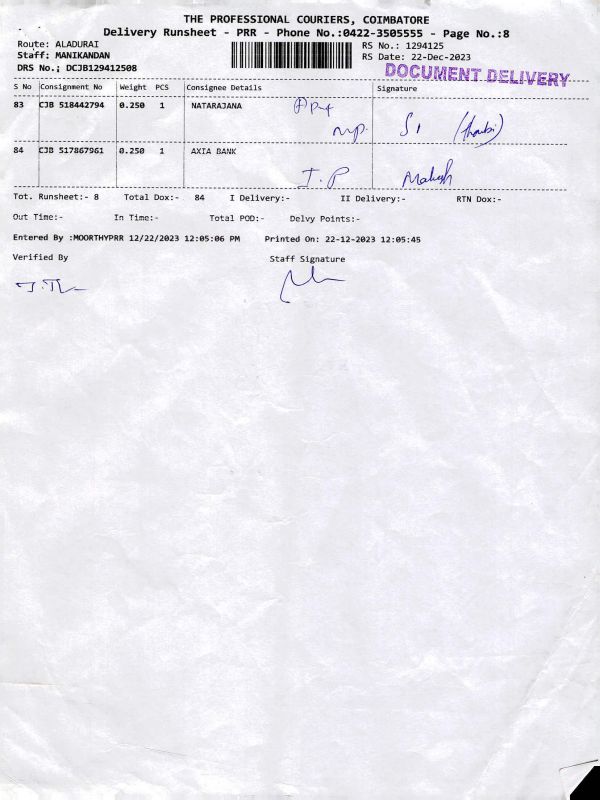 THE PROFESSIONAL COURIERS, COIMBATORE
Delivery Runsheet - PRR - Phone No.:0422-3505555 - Page No.:8
Route: ALADURAI RS No.: 1294125
Staff: MANIKANDAN RS Date: 22-Dec-2023
DRS No.; DCJB129412508 DOCUMENT DELIVERY
S No Consignment No Weight PCS Consignee Details Signature
83 CJB 518442794 0.250 1 NATARAJANA
84 CJB 517867961 0.250 1 AXIA BANK
I.P Mahesh
Tot. Runsheet:- 8 Total Dox:- 84 I Delivery:- II Delivery:- RTN Dox:-
Out Time:- In Time:- Total POD:- Delvy Points:-
Entered By :MOORTHYPRR 12/22/2023 12:05:06 PM Printed On: 22-12-2023 12:05:45
Verified By Staff Signature